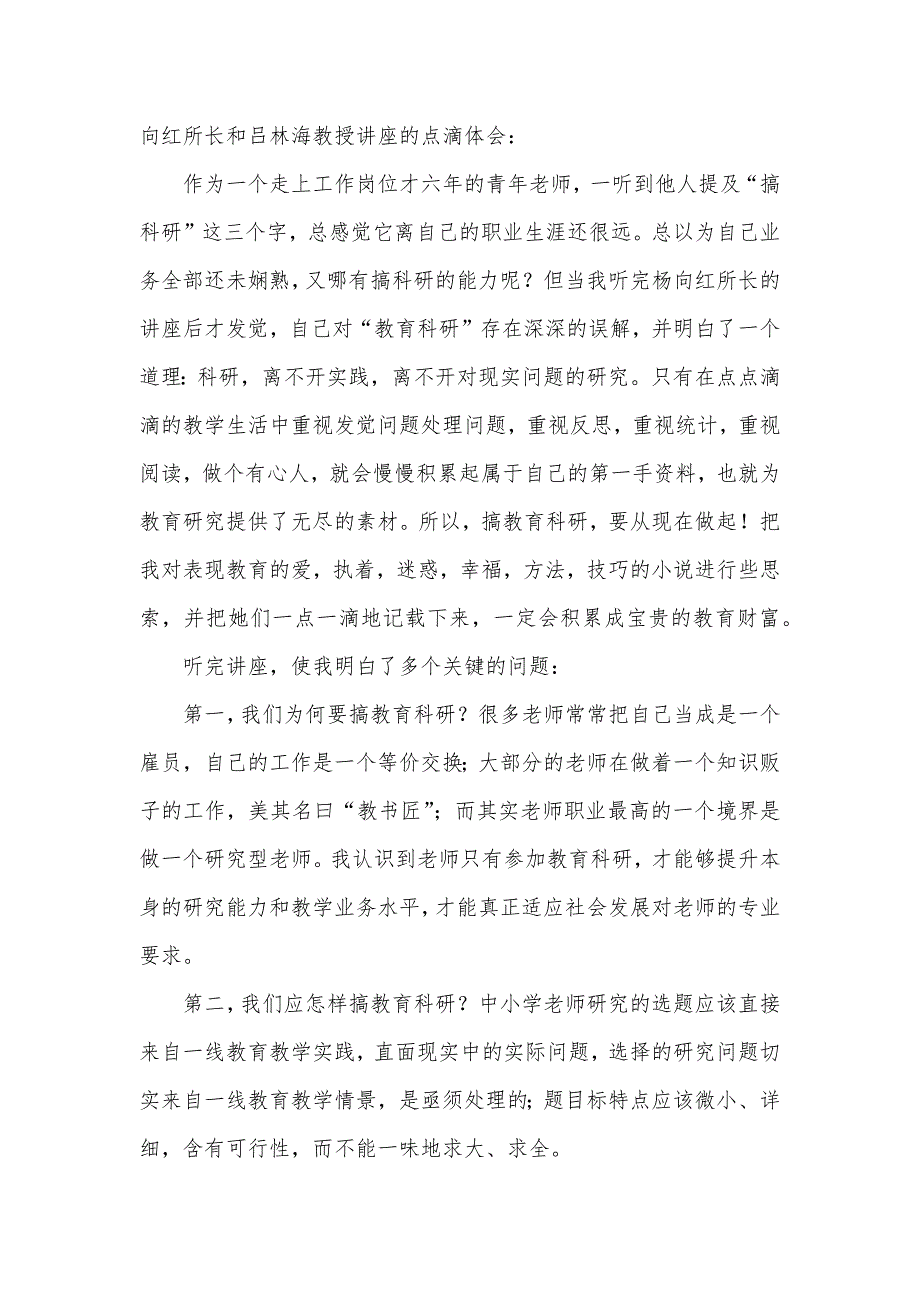 向红所长和吕林海教授讲座的点滴体会：
作为一个走上工作岗位才六年的青年老师，一听到他人提及“搞
科研”这三个字，总感觉它离自己的职业生涯还很远。总以为自己业
务全部还未娴熟，又哪有搞科研的能力呢？但当我听完杨向红所长的
讲座后才发觉，自己对“教育科研”存在深深的误解，并明白了一个
道理：科研，离不开实践，离不开对现实问题的研究。只有在点点滴
滴的教学生活中重视发觉问题处理问题，重视反思，重视统计，重视
阅读，做个有心人，就会慢慢积累起属于自己的第一手资料，也就为
教育研究提供了无尽的素材。所以，搞教育科研，要从现在做起！把
我对表现教育的爱，执着，迷惑，幸福，方法，技巧的小说进行些思
索，并把她们一点一滴地记载下来，一定会积累成宝贵的教育财富。
听完讲座，使我明白了多个关键的问题：
第一，我们为何要搞教育科研？很多老师常常把自己当成是一个
雇员，自己的工作是一个等价交换；大部分的老师在做着一个知识贩
子的工作，美其名曰“教书匠”；而其实老师职业最高的一个境界是
做一个研究型老师。我认识到老师只有参加教育科研，才能够提升本
身的研究能力和教学业务水平，才能真正适应社会发展对老师的专业
要求。
第二，我们应怎样搞教育科研？中小学老师研究的选题应该直接
来自一线教育教学实践，直面现实中的实际问题，选择的研究问题切
实来自一线教育教学情景，是亟须处理的；题目标特点应该微小、详
细，含有可行性，而不能一味地求大、求全。